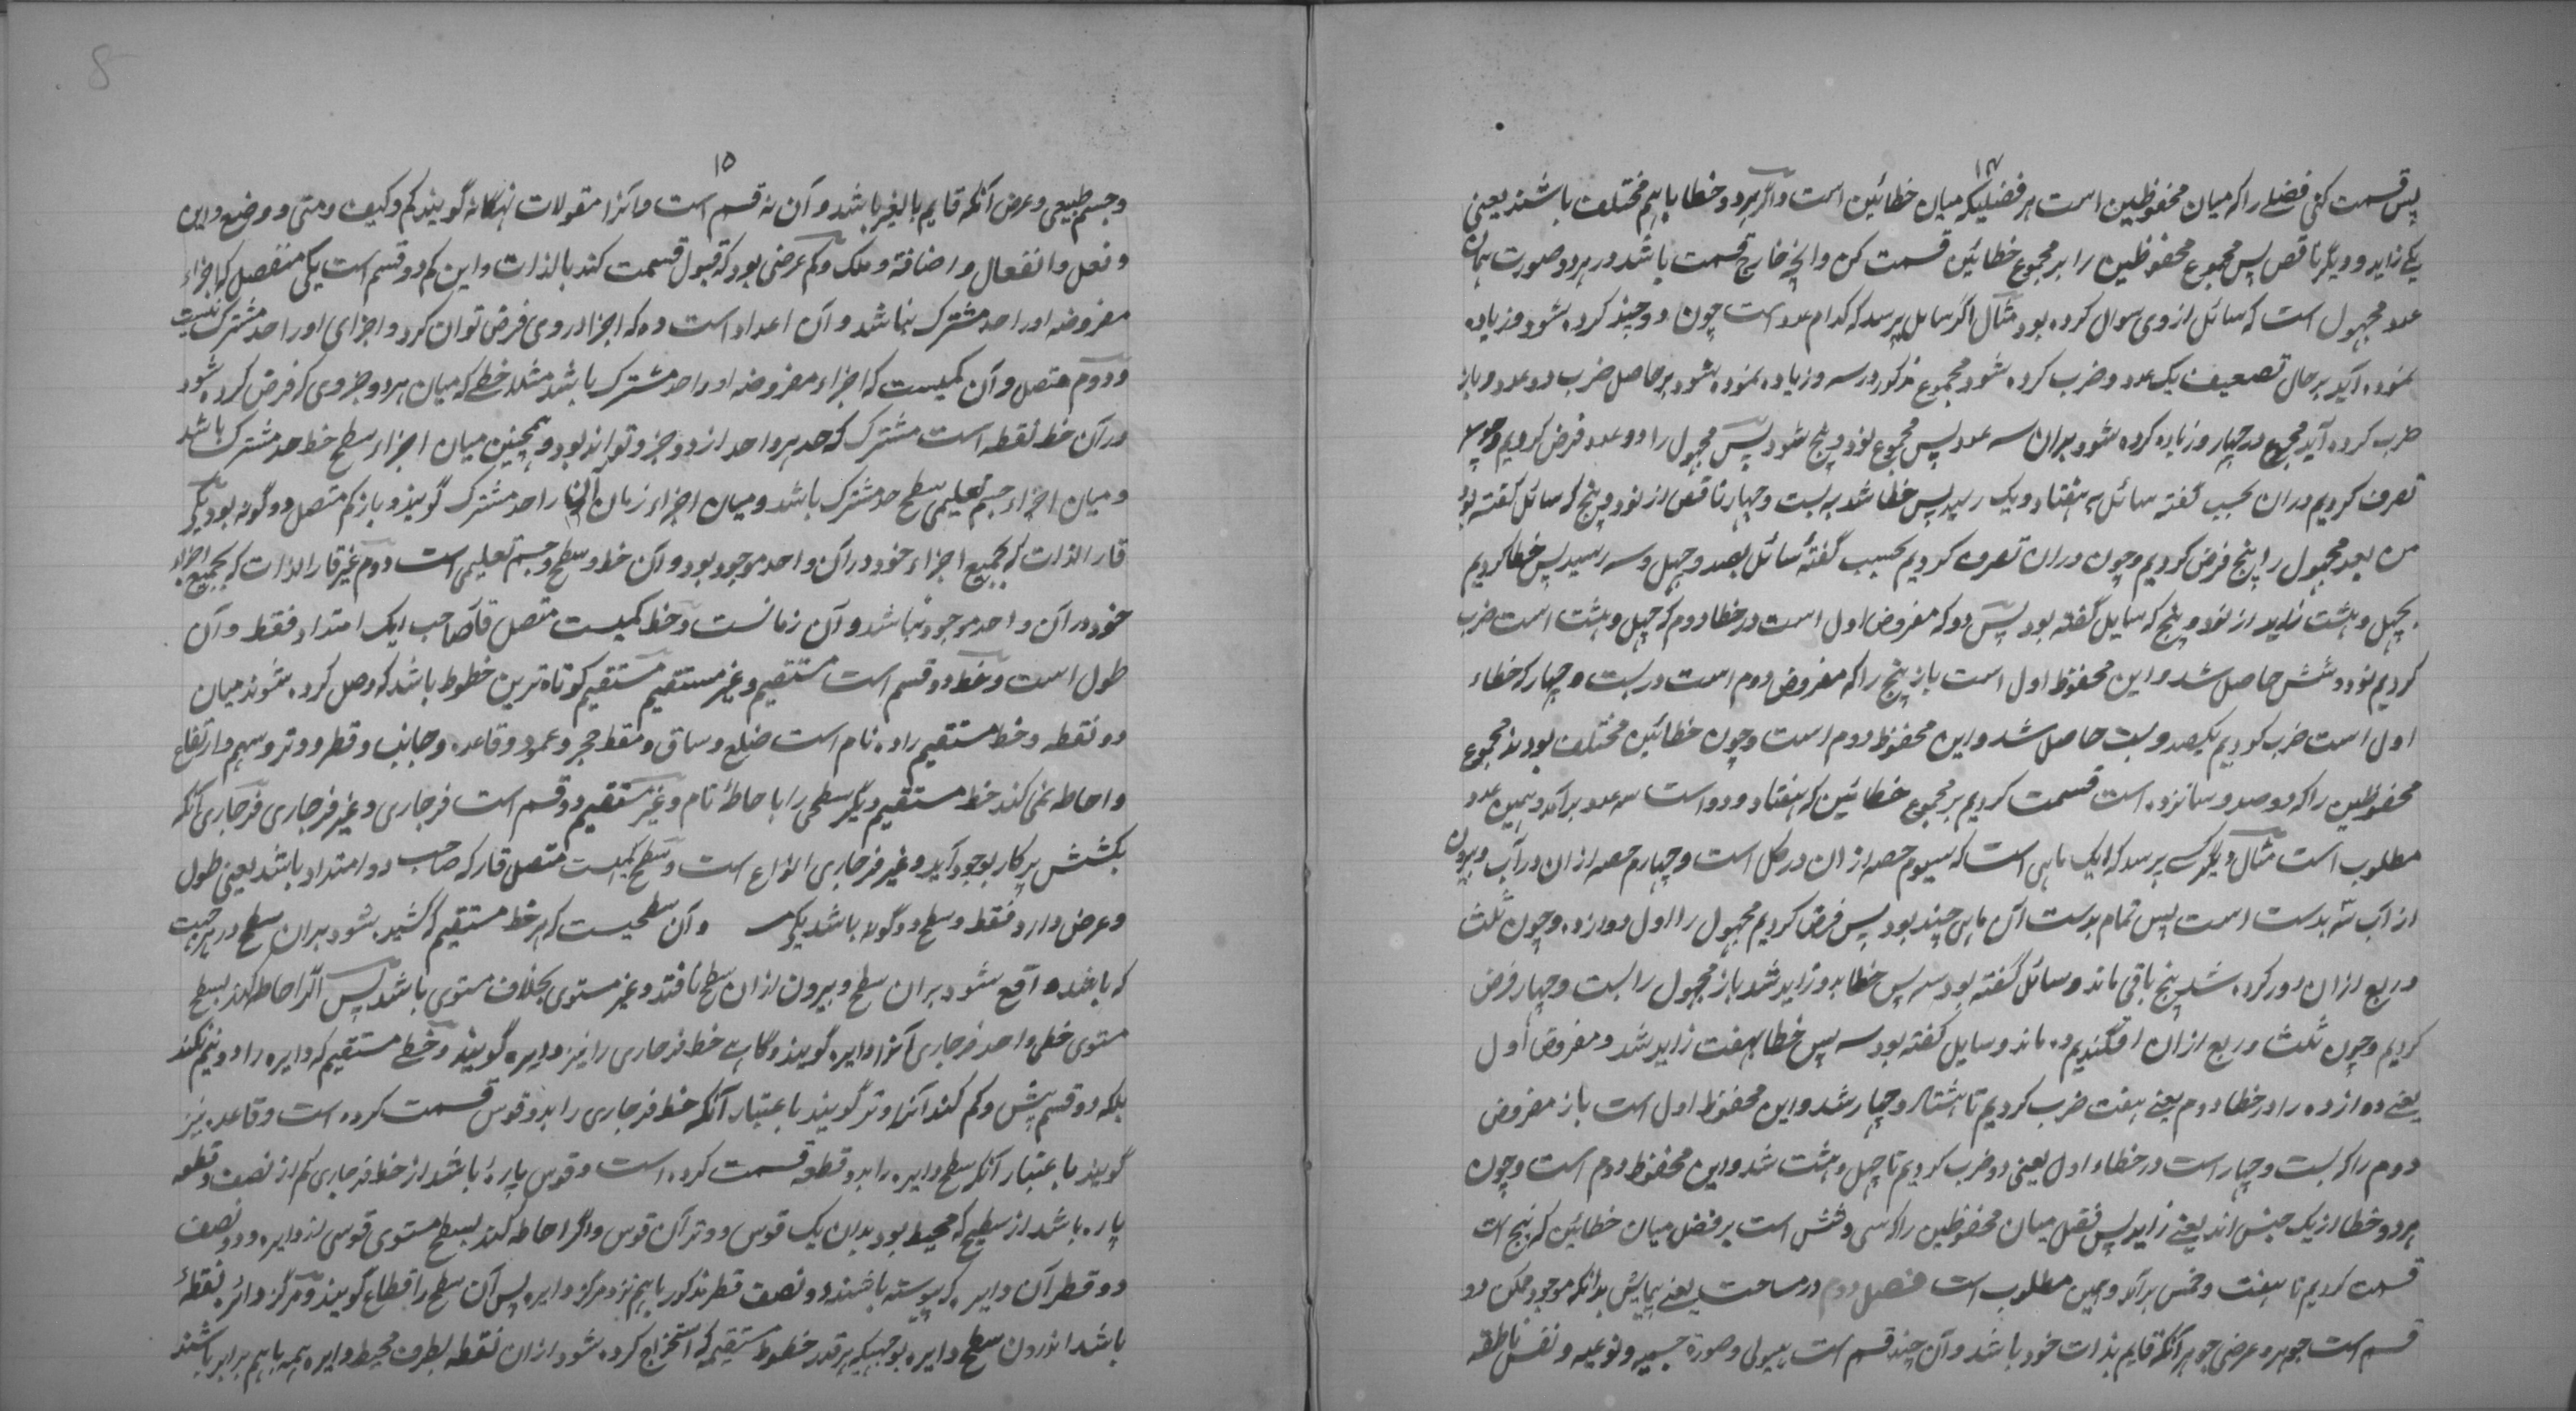 ۱۴
پس قسمت کنی فضلے را که میان محفوظین است بر فضلیکه میان خطائین است و اگر هر دو خطا باهم مختلف باشند یعنی
یکے زاید و دیگر ناقص پس مجموع محفوظین را بر مجموع خطائین قسمت کن و انچه خارج قسمت باشد در هر دو صورت همان
عدد مجهول است که سائل از وی سوال کرده بود مثال اگر سایل پرسد که کدام عدد است چون دو چند کرده شود و زیاده
نموده آید بر حال تضعیف یک عدد و ضرب کرده شود مجموع مذکور در سه و زیاده نموده شود بر حاصل ضرب دو عدد و باز
ضرب کرده آید مجموع در چهار و زیاده کرده شود بران سه عدد پس مجموع نود و پنج شود پس مجهول را دو عدد فرض کردیم و چون
تصرف کردیم دران بحسب گفته سائل به هفتاد و یک رسید پس خطا شد به بست و چهار ناقص از نود و پنج که سائل گفته بود
من بعد مجهول را پنج فرض کردیم و چون دران تصرف کردیم بحسب گفتهٔ سائل بصد و چهل و سه رسید پس خطا کردیم
بچهل و هشت زاید از نود و پنج که سایل گفته بود پس دو که مفروض اول است در خطا دوم که چهل و هشت است ضرب
کردیم نود و شش حاصل شد و این محفوظ اول است باز پنج را که مفروض دوم است در بست و چهار که خطاء
اول است ضرب کردیم یکصد و بست حاصل شد و این محفوظ دوم است و چون خطائین مختلف بودند مجموع
محفوظین را که دوصد و شانزده است قسمت کردیم بر مجموع خطائین که هفتاد و دو است سه عدد برآمد و همین عدد
مطلوب است مثال دیگر کسے پرسد که ایک ماهی است که سیوم حصه از ان در گل است و چهارم حصه از ان در آب و بیرون
از آب سه بدست است پس تمام بدست آن ماهی چند بود پس فرض کردیم مجهول را اول دوازده و چون ثلث
و ربع از ان دور کرده شد پنج باقی ماند و سائل گفته بود سه پس خطا بدو زاید شد باز مجهول را بست و چهار فرض
کردیم و چون ثلث و ربع از ان افگندیم ده ماند و سایل گفته بود سه پس خطا بهفت زاید شد و مفروض اول
یعنے دوازده را در خطا دوم یعنے هفت ضرب کردیم تا هشتاد و چهار شد و این محفوظ اول است باز مفروض
دوم را که بست و چهار است در خطاء اول یعنی دو ضرب کردیم تا چهل و هشت شد و این محفوظ دوم است و چون
هر دو خطا از یک جنس اند یعنے زاید پس فضل میان محفوظین را که سی و شش است بر فضل میان خطائین که پنج است
قسمت کردیم تا هفت و خمس برآمد و همین مطلوب است فصل دوم در مساحت یعنے پیمایش بدانکه موجود ممکن دو
قسم است جوهر و عرض جوهر آنکه قایم بذات خود باشد و آن چند قسم است هیولی و صورة جسمیه و نوعیه و نفس ناطقه
۱۵
و جسم طبیعی و عرض آنکه قایم بالغیر باشد و آن نه قسم است و آنرا مقولات نهگانه گویند کم و کیف و متی و وضع و این
و فعل و انفعال و اضافة و ملک و کم عرضی بود که قبول قسمت کند بالذات و این کم دو قسم است یکی منفصل که اجزاء
مفروضه او را حد مشترک نباشد و آن اعداد است و ه که اجزا در وی فرض توان کرد و اجزای او را حد مشترک نیست
و دوم متصل و آن کمیست که اجزاء مفروضه او را حد مشترک باشد مثلا خطے که میان هر دو جزوی که فرض کرده شود
دران خط نقطه است مشترک که حد هر واحد از دو جزو تواند بود و همچنین میان اجزاء سطح خط حد مشترک باشد
و میان اجزاء جسم تعلیمی سطح حد مشترک باشد و میان اجزاء زمان آن را حد مشترک گویند و باز کم متصل دو گونه بود یکی
قار الذات که جمیع اجزاء خود در آن واحد موجود بود و آن خط و سطح و جسم تعلیمی است دوم غیر قار الذات که بجمیع اجزاء
خود در آن واحد موجود نباشد و آن زمانست و خط کمیست متصل قار صاحب ایک امتداد فقط و آن
طول است و خط دو قسم است مستقیم و غیر مستقیم مستقیم کوتاه ترین خطوط باشد که وصل کرده شوند میان
دو نقطه و خط مستقیم را ده نام است ضلع و ساق و مسقط حجر و عمود و قاعده و جانب و قطر و وتر و سهم و ارتفاع
و احاطه نمی کند خط مستقیم دیگر سطحی را با حاطهٔ تام و غیر مستقیم دو قسم است فرجاری و غیر فرجاری فرجاری آنکه
بکشش پرکار بوجود آید و غیر فرجاری انواع است و سطح کمیست متصل قار که صاحب دو امتداد باشد یعنی طول
و عرض دارد فقط و سطح دو گونه باشد یکی و آن سطحیست که هر خط مستقیم که کشیده شود بران سطح در هر جهت
که باشد واقع شود بران سطح و بیرون ازان سطح نافتد و غیر مستوی بخلاف مستوی باشد پس اگر احاطه کند بسطح
مستوی خطی واحد فرجاری آنرا دایره گویند و گاهے خط فرجاری را نیز دایره گویند و خطے مستقیم که دایره را دو نیم نکند
بلکه دو قسم بیش و کم کند آنرا وتر گویند باعتبار آنکه خط فرجاری را بدو قوس قسمت کرده است و قاعده نیز
گویند باعتبار آنکه سطح دایره را بدو قطعه قسمت کرده است و قوس پارهٔ باشد از خط فرجاری کم از نصف و قطعه
پاره باشد از سطحی که محیط بود بدان یک قوس و وتر آن قوس و اگر احاطه کند بسطح مستوی قوسی از دایره و دو نصف
دو قطر آن دایره که پیوسته باشند دو نصف قطر مذکور باهم نزد مرکز دایره پس آن سطح را قطاع گویند و مرکز دائره نقطهٔ
باشد اندرون سطح دایره بوجهیکه هر قدر خطوط مستقیمه که استخراج کرده شود ازان نقطه بطرف محیط دایره همه باهم برابر باشند